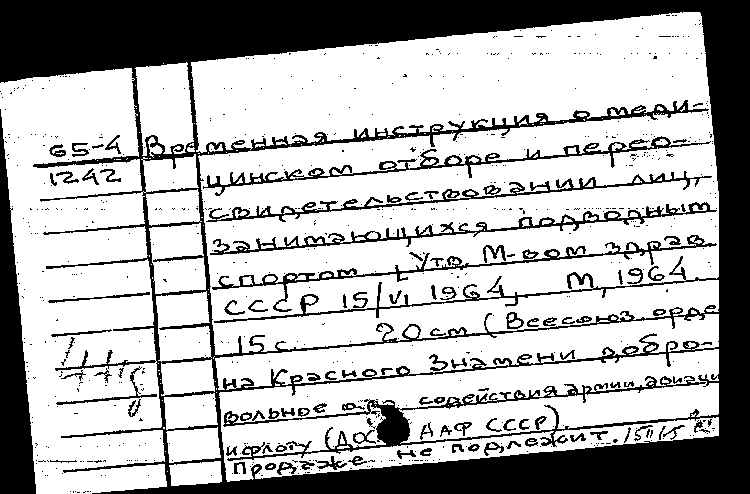 65-4 Временная инструкция о меди-
1242 цинском отборе и перео-
свидетельствовании лиц,
занимающихся подводным
спортом. Утв. М-вом здрав.
СССР 15/VI 1964, М, 1964.
15 с. 20 см (Всесоюз. орде
на Красного Знамени добро-
вольное о-во содействия армии, авиаци
и флоту (ДОС ААФ СССР).
Продаже не подлежит.